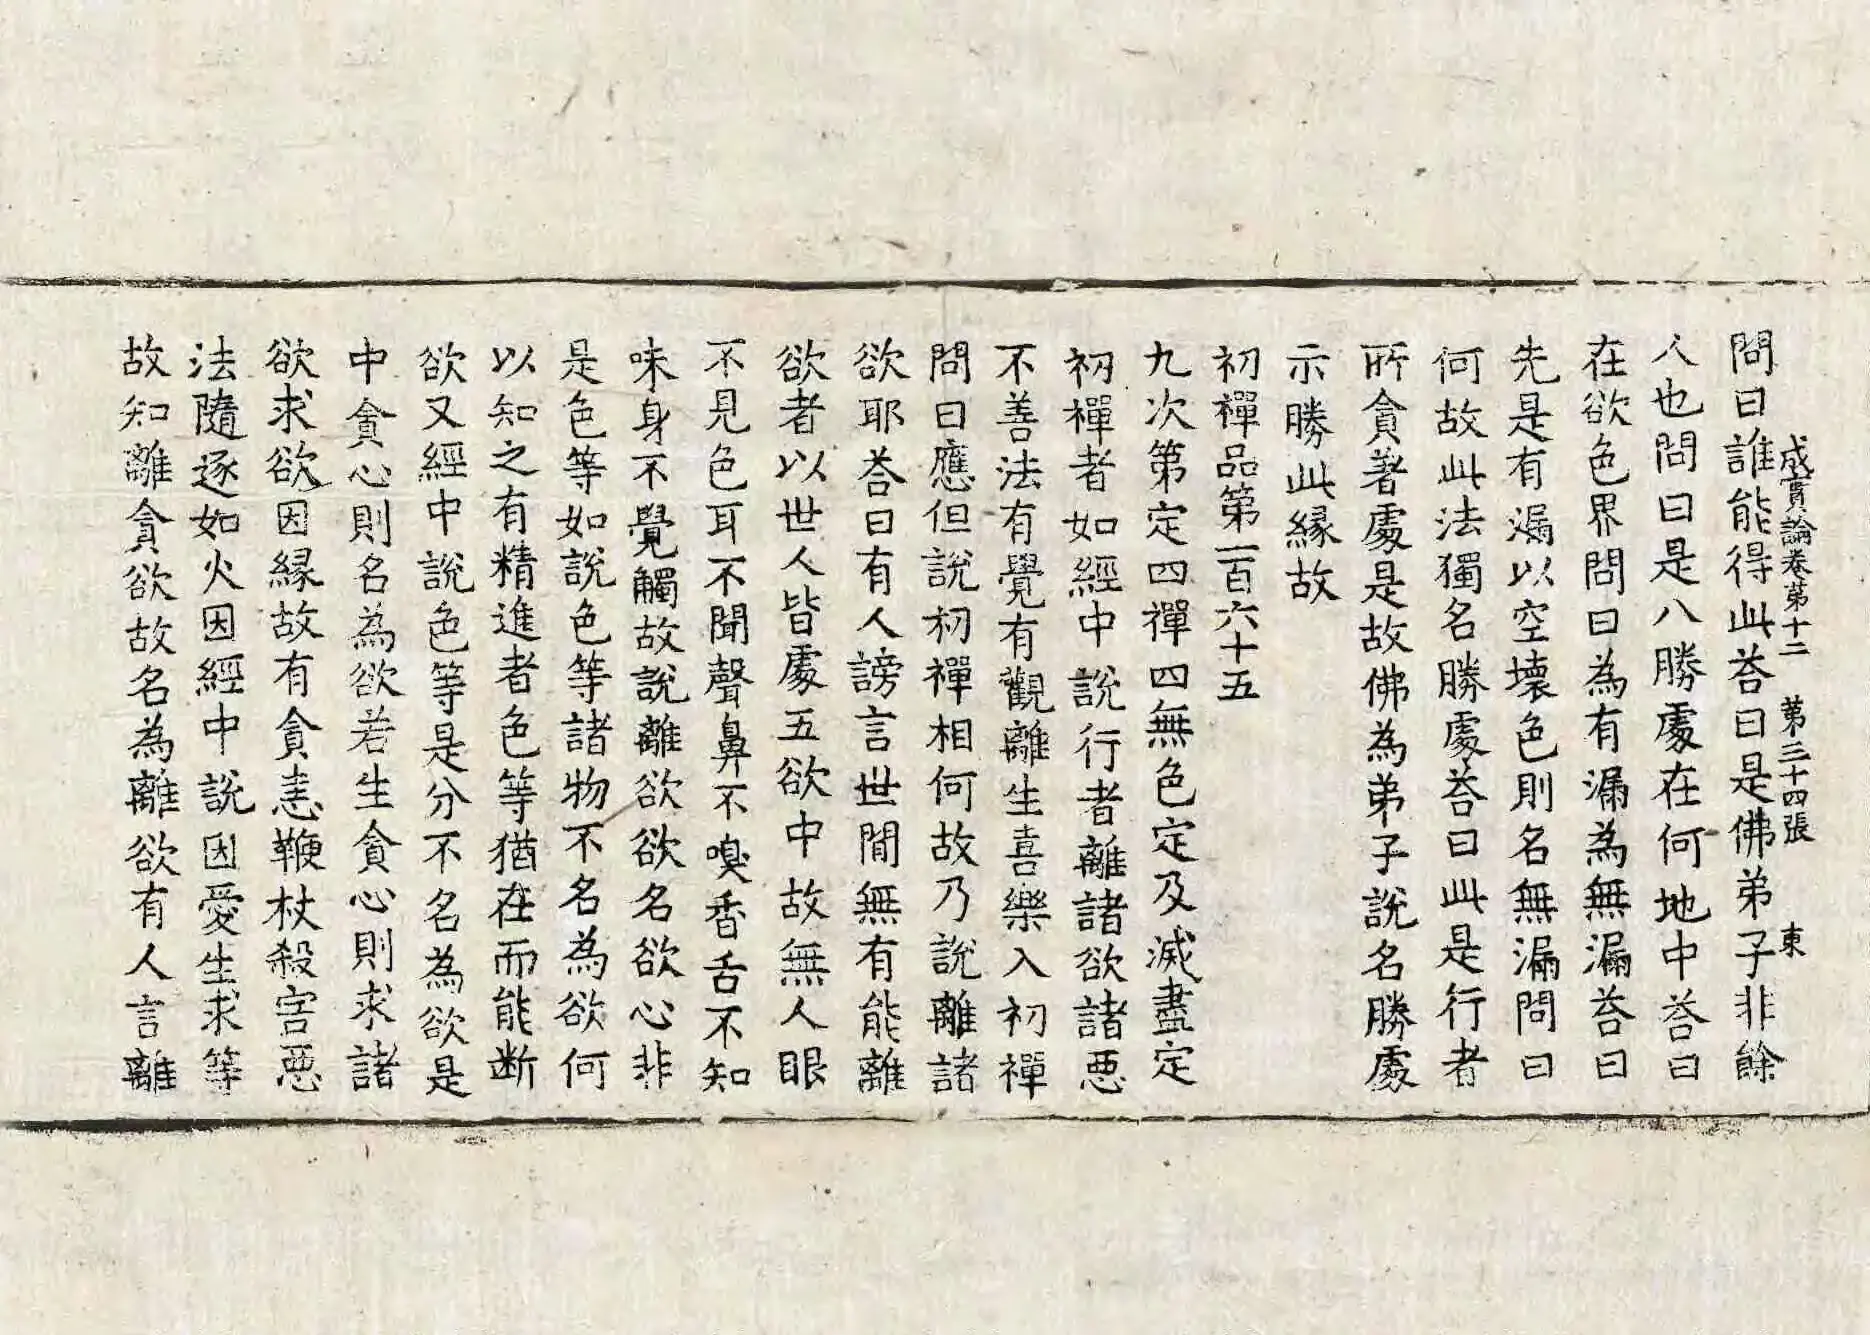 成實論卷第十二 第三十四張 東
問曰誰能得此荅曰是佛弟子非餘
人也問曰是八勝處在何地中荅曰
在欲色界問曰為有漏為無漏荅曰
先是有漏以空壞色則名無漏問曰
何故此法獨名勝處荅曰此是行者
所貪著處是故佛為弟子說名勝處
示勝此緣故
初禪品第一百六十五
九次第定四禪四無色定及滅盡定
初禪者如經中說行者離諸欲諸惡
不善法有覺有觀離生喜樂入初禪
問曰應但說初禪相何故乃說離諸
欲耶荅曰有人謗言世間無有能離
欲者以世人皆處五欲中故無人眼
不見色耳不聞聲鼻不嗅香舌不知
味身不覺觸故說離欲欲名欲心非
是色等如說色等諸物不名為欲何
以知之有精進者色等猶在而能断
欲又經中說色等是分不名為欲是
中貪心則名為欲若生貪心則求諸
欲求欲因緣故有貪恚鞭杖殺害惡
法隨逐如火因經中說因愛生求等
故知離貪欲故名為離欲有人言離